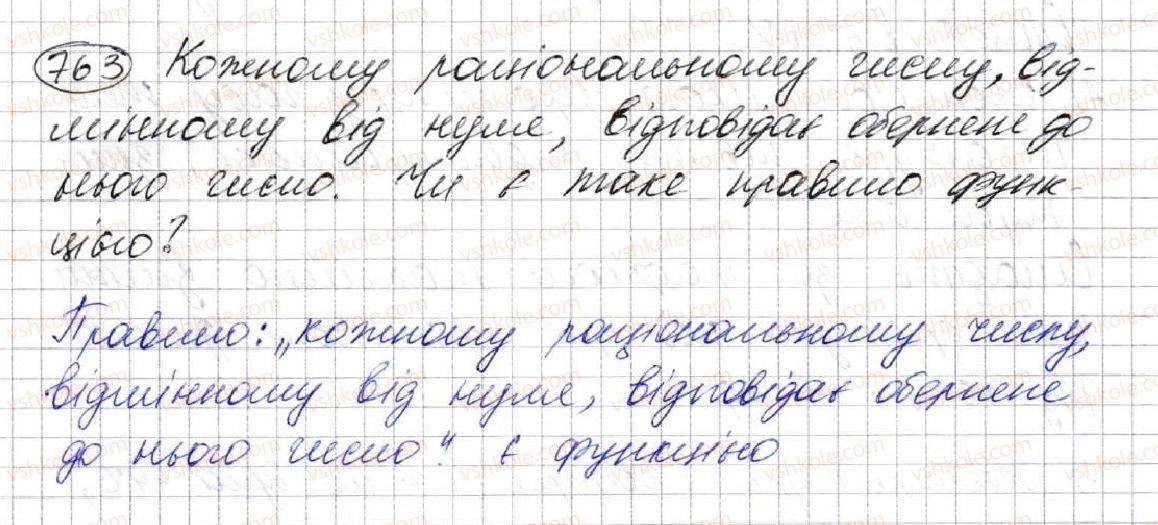 763 Кожному раціональному числу, від-
мінному від нуля, відповідає обернене до
нього число. Чи є таке правило функ-
цією?
Правило: „кожному раціональному числу,
відмінному від нуля, відповідає обернене
до нього число" є функцією